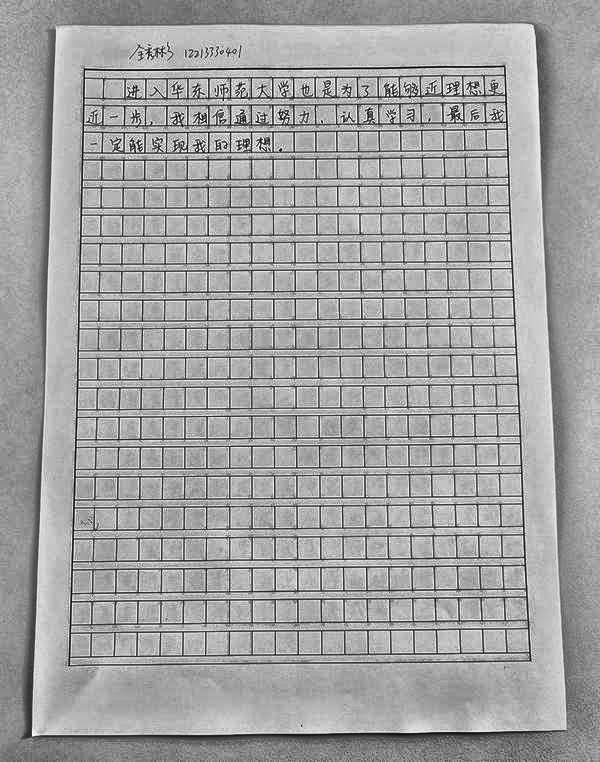 全彬 12213330401
进入华东师范大学也是为了能够近理想更
近一步，我相信通过努力、认真学习，最后我
一定能实现我的理想。